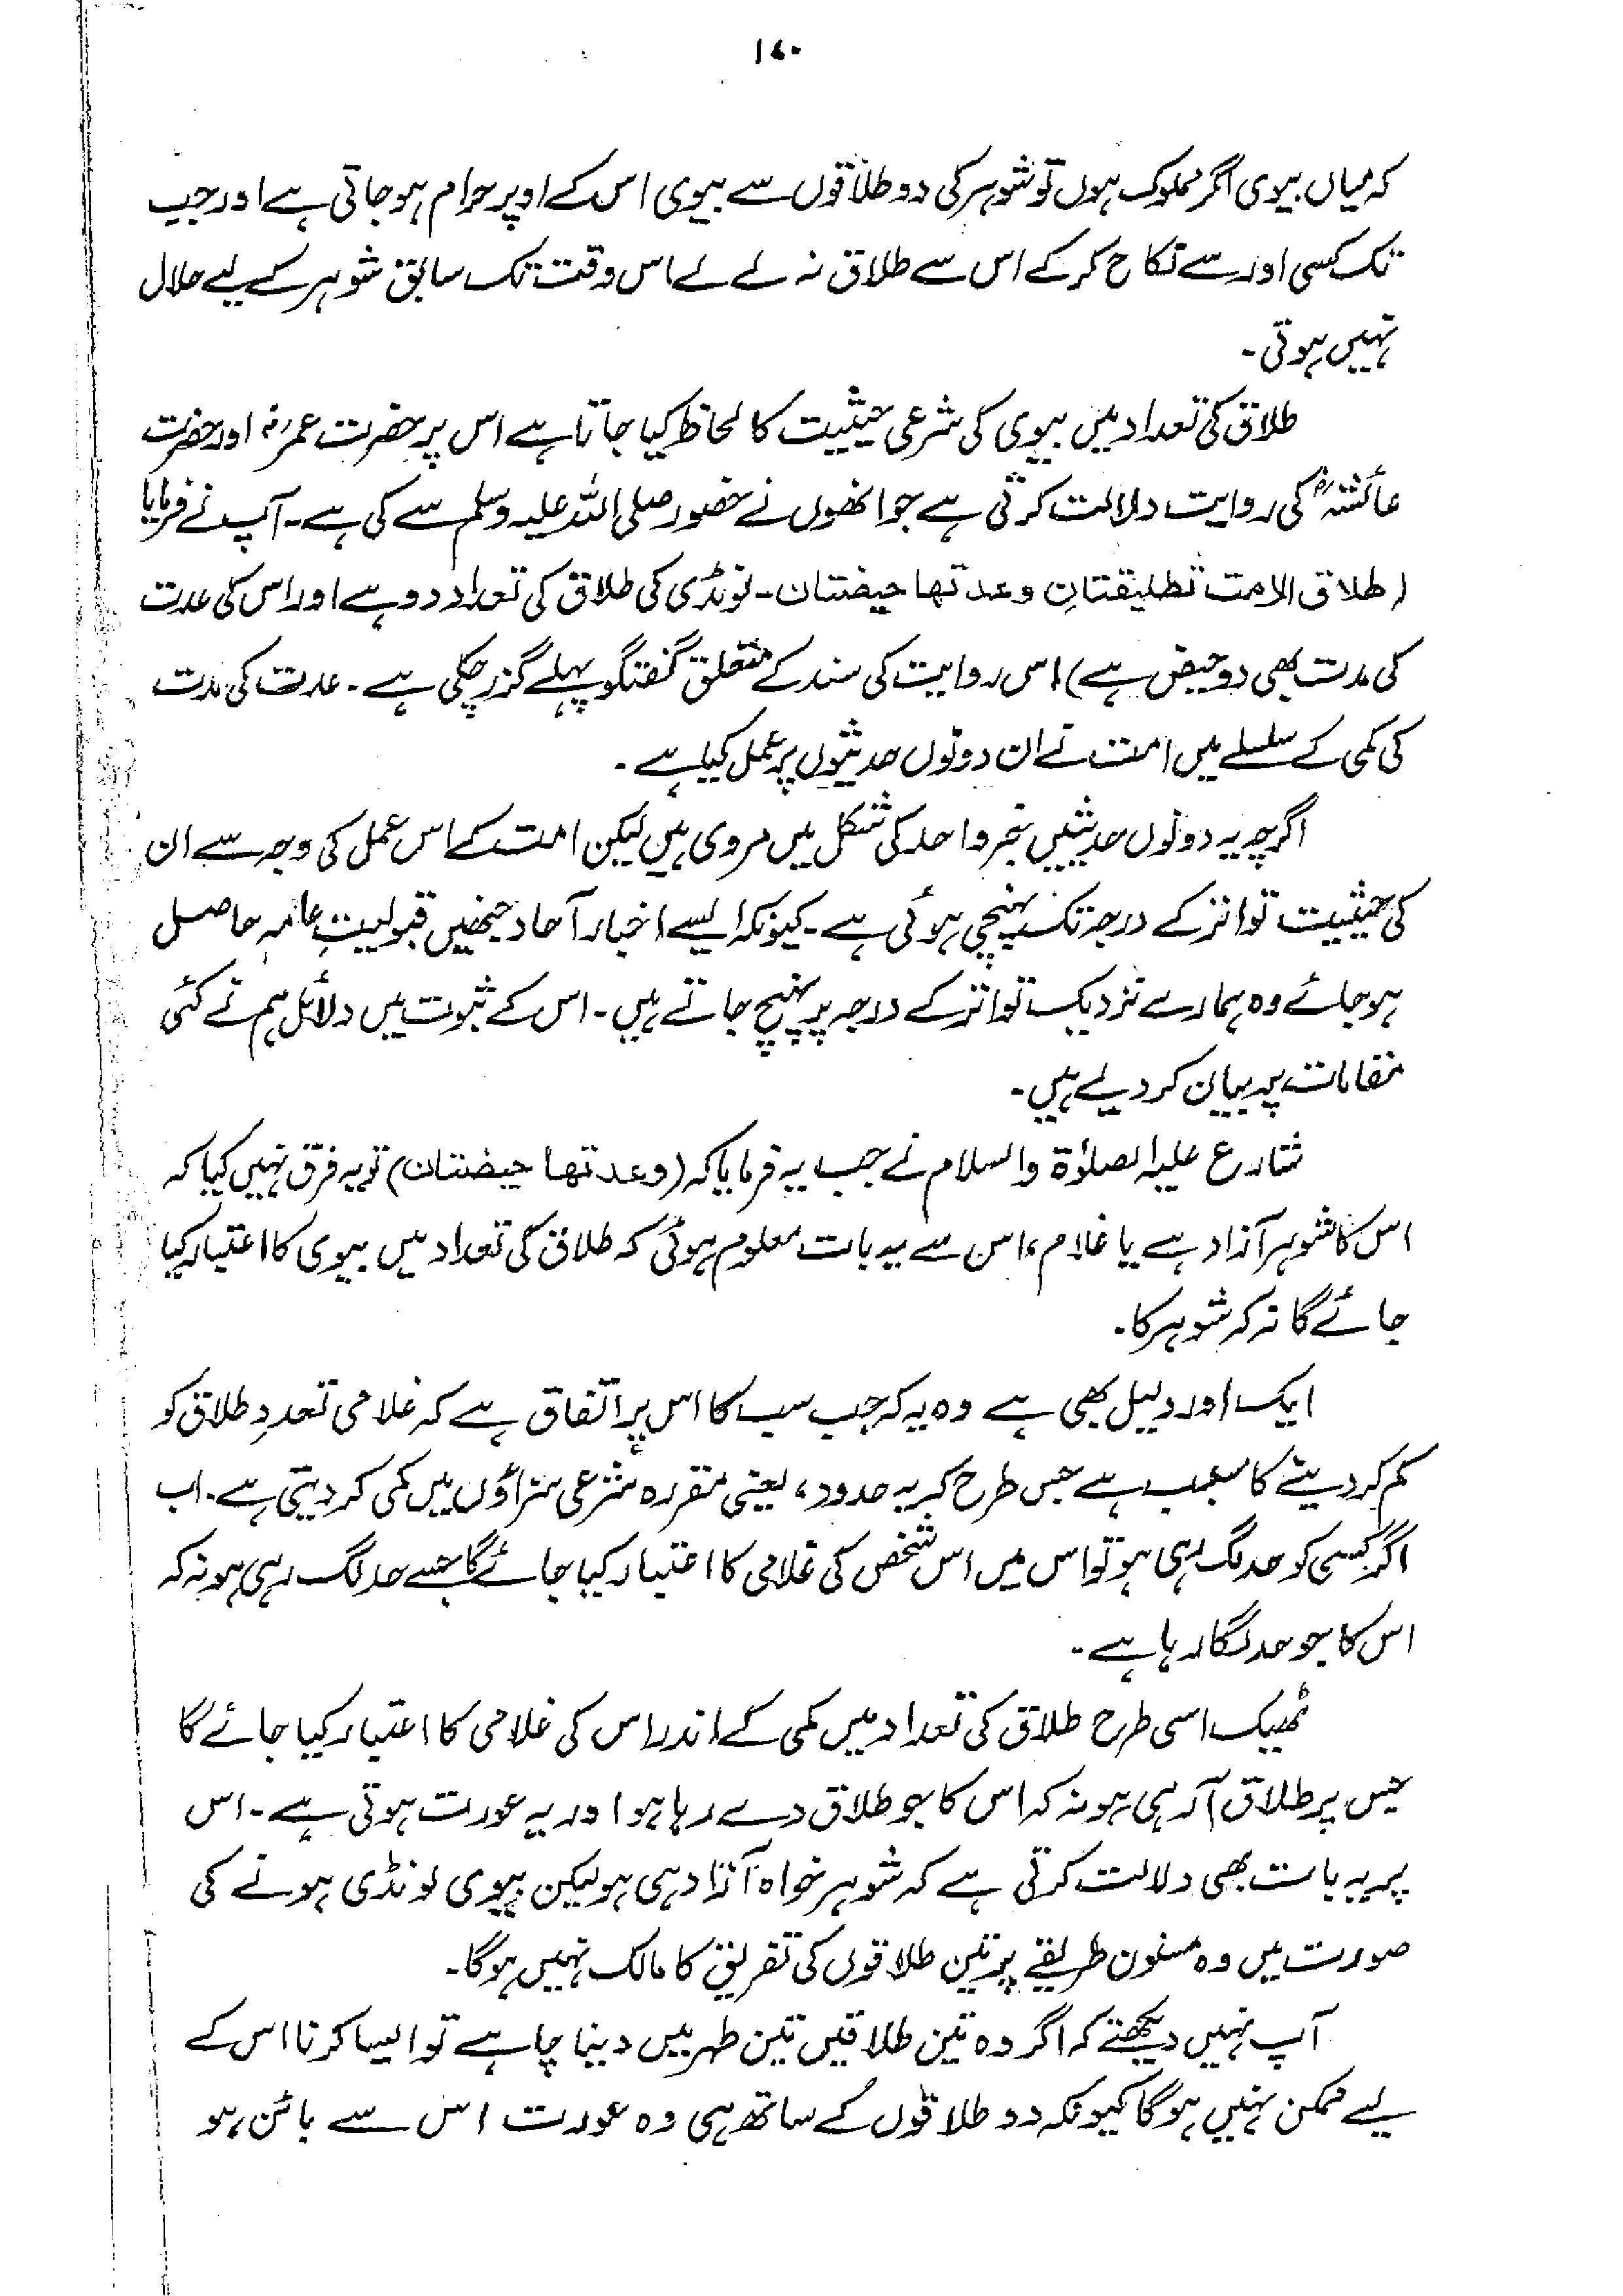 ۱۷۰
کہ میاں بیوی اگر مملوک ہوں تو شوہر کی دو طلاقوں سے بیوی اس کے اوپر حرام ہو جاتی ہے اور جب
تک کسی اور سے نکاح کر کے اس سے طلاق نہ لے لے اس وقت تک سابق شوہر کے لیے حلال
نہیں ہوتی۔
طلاق کی تعداد میں بیوی کی شرعی حیثیت کا لحاظ کیا جاتا ہے اس پر حضرت عمرؓ اور حضرت
عائشہؓ کی روایت دلالت کرتی ہے جو انھوں نے حضور صلی اللہ علیہ وسلم سے کی ہے۔ آپ نے فرمایا
(طلاق الامت تطلیقتان وعدتھا حیضتان۔ لونڈی کی طلاق کی تعداد دو ہے اور اس کی عدت
کی مدت بھی دو حیض ہے) اس روایت کی سند کے متعلق گفتگو پہلے گزر چکی ہے۔ عدت کی مدت
کی کمی کے سلسلے میں امت نے ان دونوں حدیثوں پر عمل کیا ہے۔
اگرچہ یہ دونوں حدیثیں خبر واحد کی شکل میں مروی ہیں لیکن امت کے اس عمل کی وجہ سے ان
کی حیثیت تواتر کے درجہ تک پہنچی ہوئی ہے۔ کیونکہ ایسے اخبار آحاد جنھیں قبولیتِ عامہ حاصل
ہو جائے وہ ہمارے نزدیک تواتر کے درجہ پر پہنچ جاتے ہیں۔ اس کے ثبوت میں دلائل ہم نے کئی
مقامات پر بیان کر دیے ہیں۔
شارع علیہ الصلوٰۃ والسلام نے جب یہ فرمایا کہ (وعدتھا حیضتان) تو یہ فرق نہیں کیا کہ
اس کا شوہر آزاد ہے یا غلام، اس سے یہ بات معلوم ہوئی کہ طلاق کی تعداد میں بیوی کا اعتبار کیا
جائے گا نہ کہ شوہر کا۔
ایک اور دلیل بھی ہے وہ یہ کہ جب سب کا اس پر اتفاق ہے کہ غلامی تعددِ طلاق کو
کم کر دینے کا سبب ہے جس طرح کہ یہ حدود، یعنی مقررہ شرعی سزاؤں میں کمی کر دیتی ہے۔ اب
اگر کسی کو حد لگ رہی ہو تو اس میں اس شخص کی غلامی کا اعتبار کیا جائے گا جسے حد لگ رہی ہو نہ کہ
اس کا جو حد لگا رہا ہے۔
ٹھیک اسی طرح طلاق کی تعداد میں کمی کے اندر اس کی غلامی کا اعتبار کیا جائے گا
جس پر طلاق آ رہی ہو نہ کہ اس کا جو طلاق دے رہا ہو اور یہ عورت ہوتی ہے۔ اس
پر یہ بات بھی دلالت کرتی ہے کہ شوہر خواہ آزاد ہی ہو لیکن بیوی لونڈی ہونے کی
صورت میں وہ مسنون طریقے پر تین طلاقوں کی تفریق کا مالک نہیں ہوگا۔
آپ نہیں دیکھتے کہ اگر وہ تین طلاقیں تین طہر میں دینا چاہے تو ایسا کرنا اس کے
لیے ممکن نہیں ہوگا کیونکہ دو طلاقوں کے ساتھ ہی وہ عورت اس سے بائن ہو